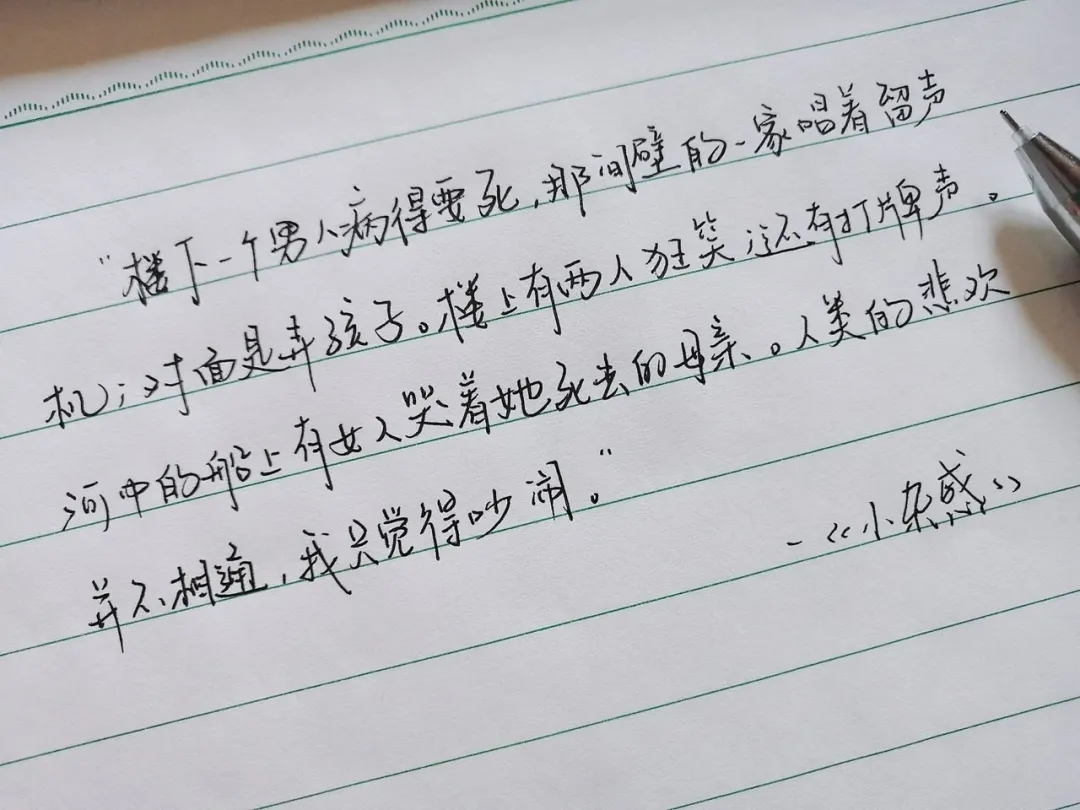 “楼下一个男人病得要死,那间壁的一家唱着留声
机;对面是弄孩子。楼上有两人狂笑;还有打牌声。
河中的船上有女人哭着她死去的母亲。人类的悲欢
并不相通,我只觉得吵闹。”
-《小杂感》